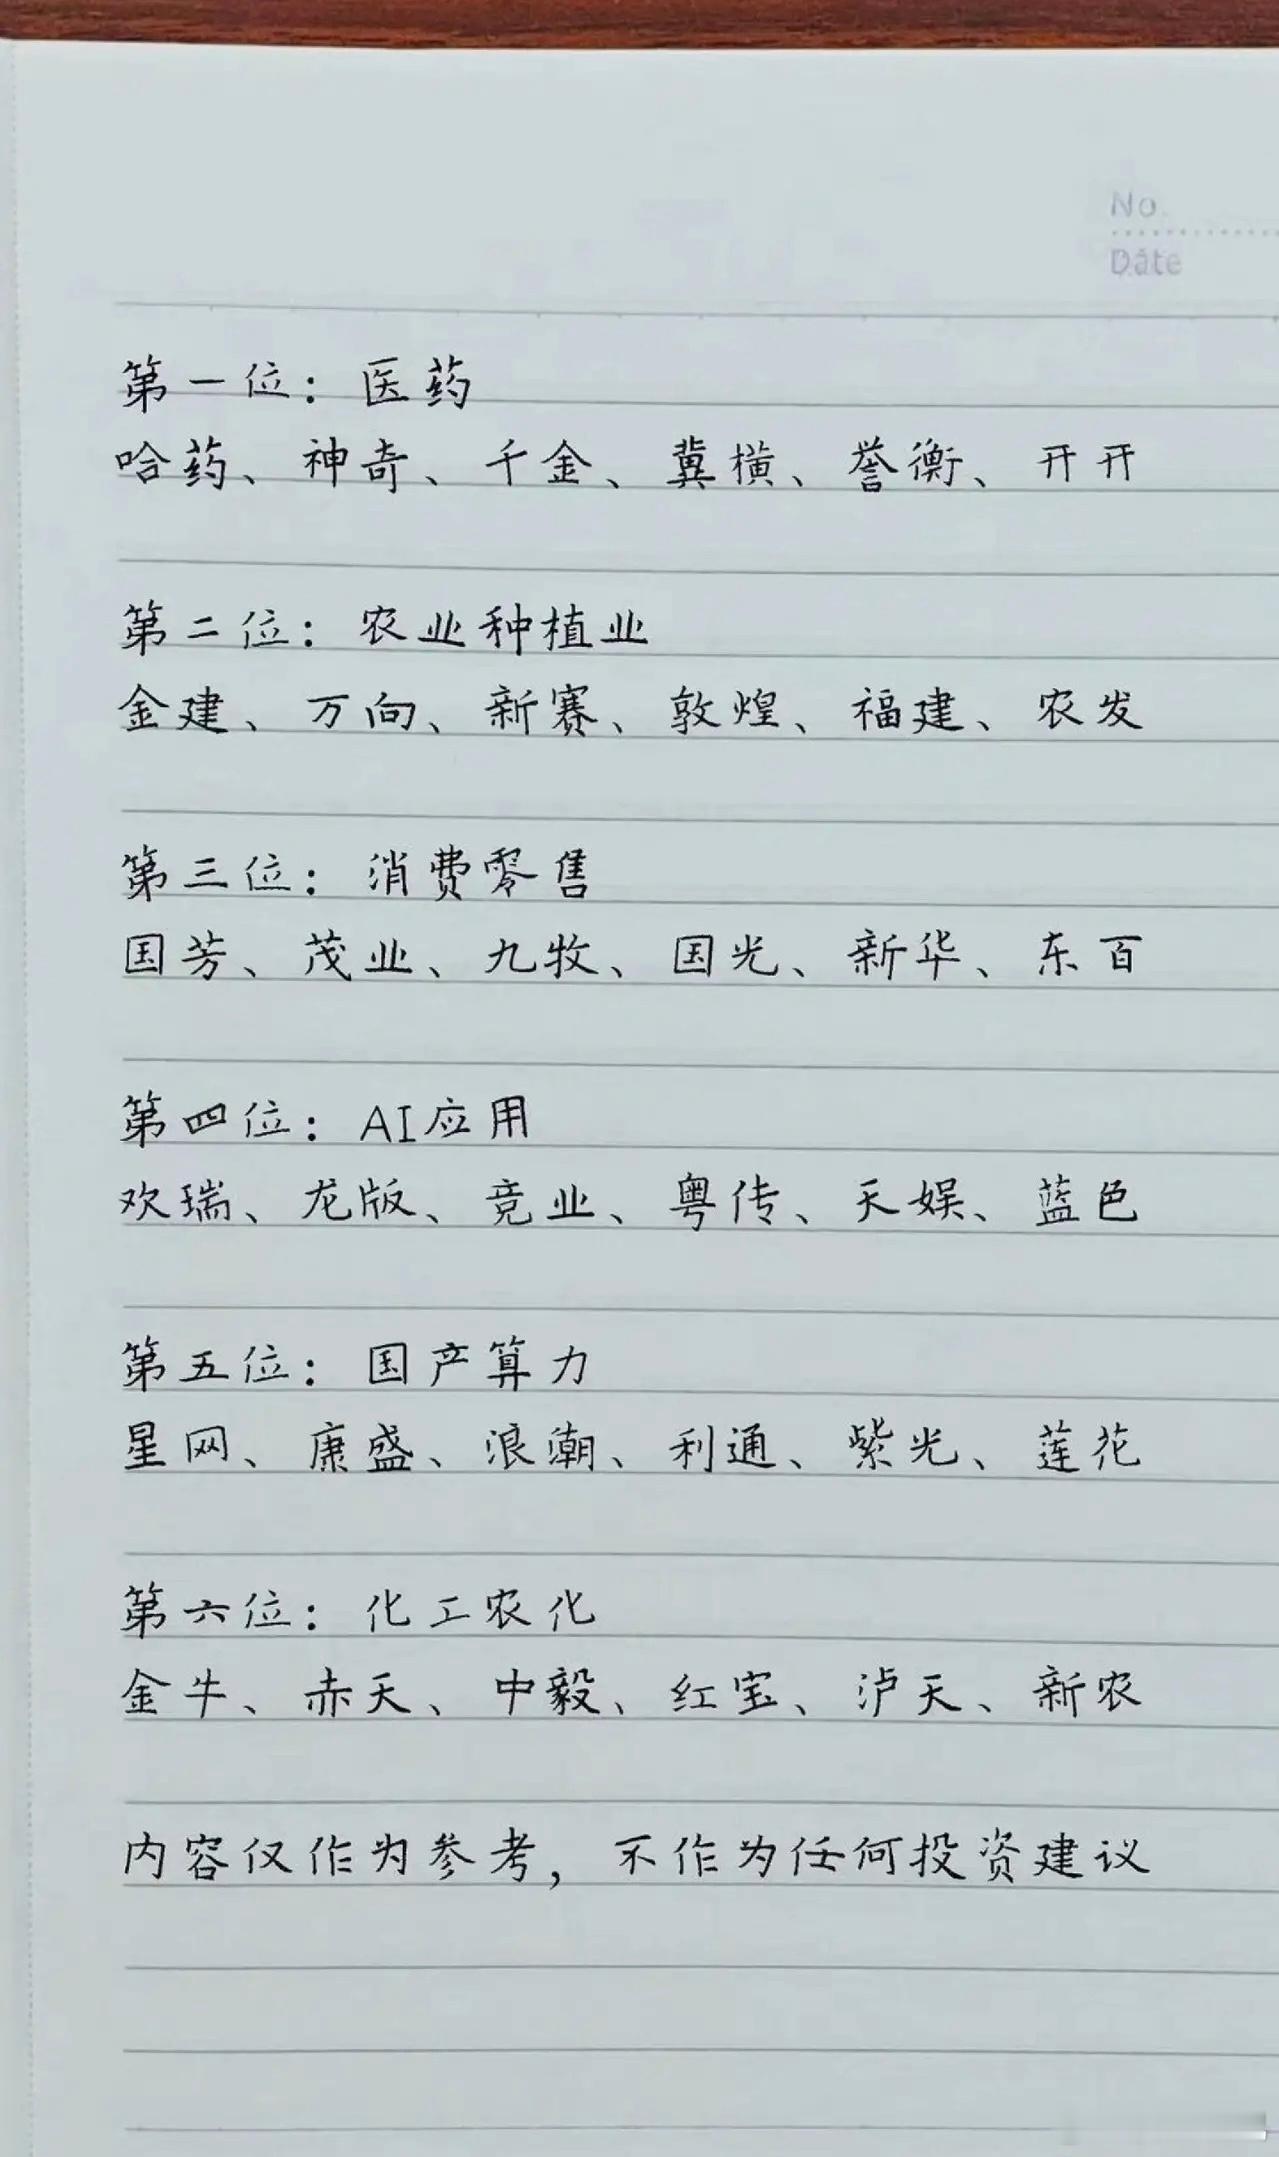 No.
Date
第一位：医药
哈药、神奇、千金、冀横、誉衡、开开
第二位：农业种植业
金建、万向、新赛、敦煌、福建、农发
第三位：消费零售
国芳、茂业、九牧、国光、新华、东百
第四位：AI应用
欢瑞、龙版、竞业、粤传、天娱、蓝色
第五位：国产算力
星网、康盛、浪潮、利通、紫光、莲花
第六位：化工农化
金牛、赤天、中毅、红宝、泸天、新农
内容仅作为参考，不作为任何投资建议